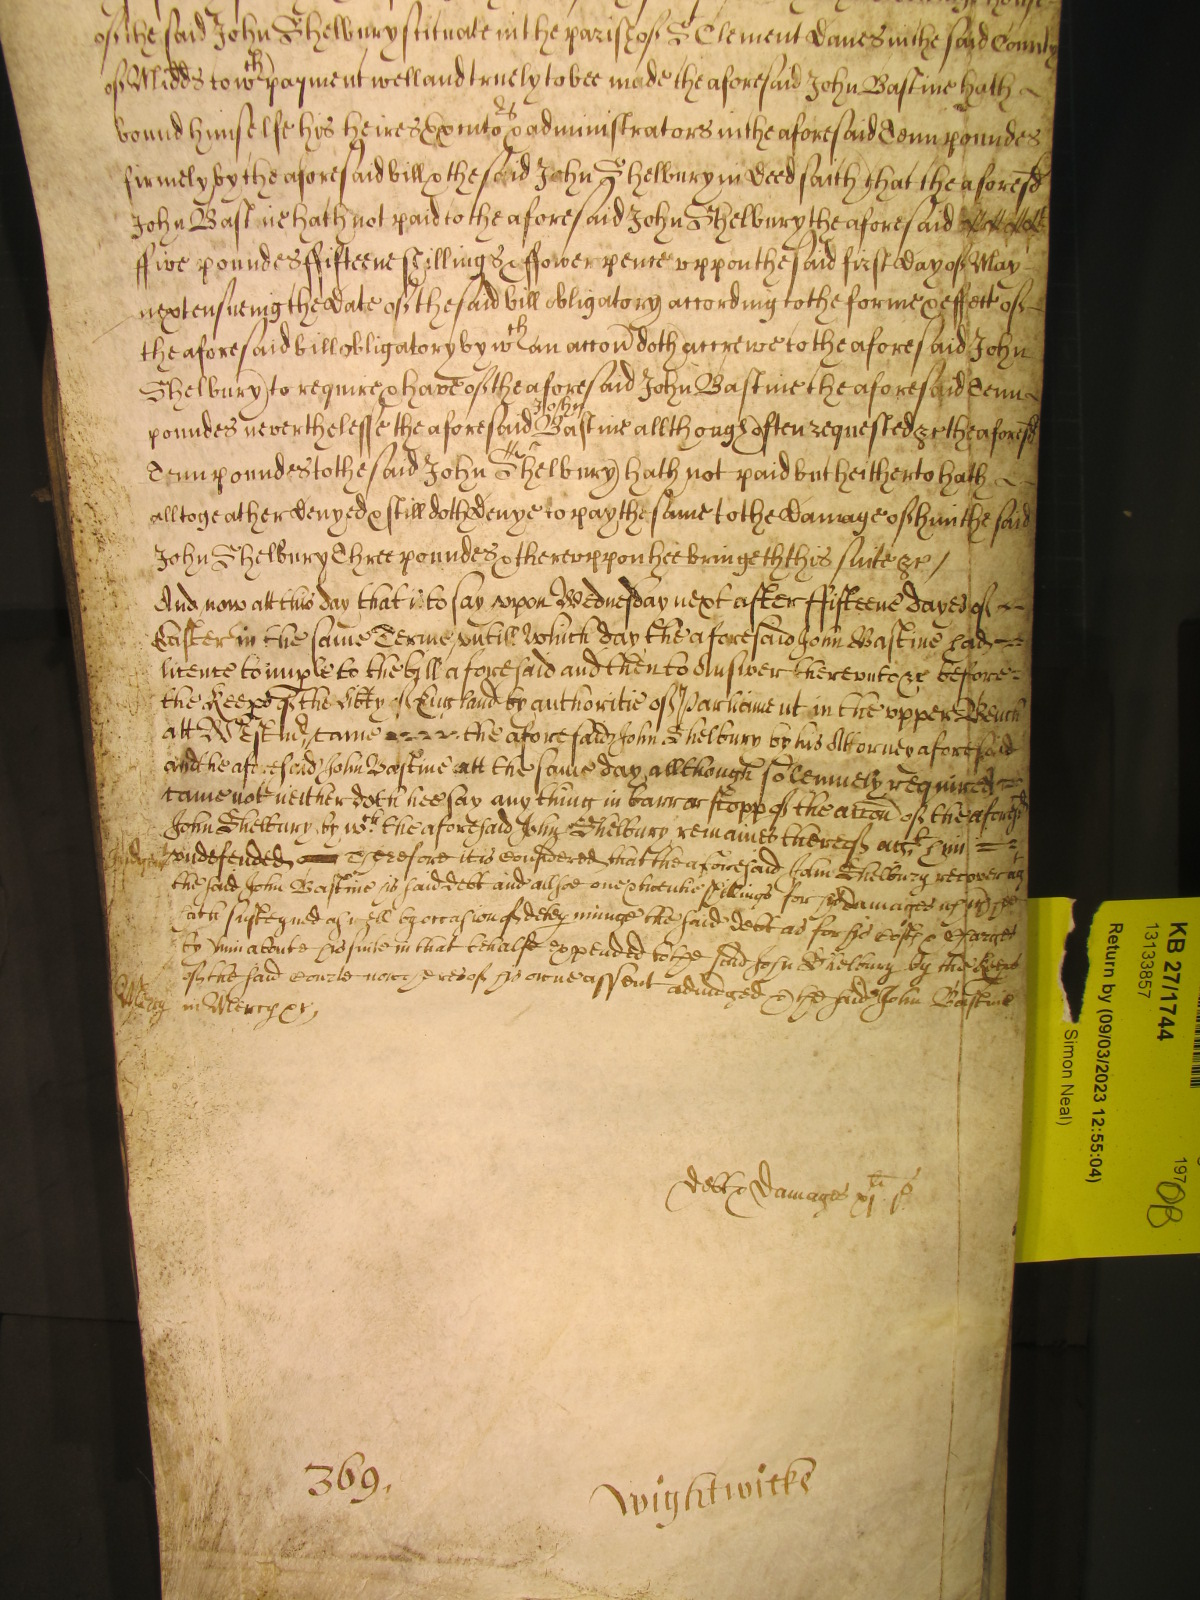 of the said John Shelbury scituate in the parish of St Clement Danes in the said County
of Midds to wch payment well and truely to bee made the aforesaid John Bastine hath
bound himselfe his heires Executors & administrators in the aforesaid Tenn poundes
firmely by the aforesaid bill & the said John Shelbury in deed saith that the aforesd
John Bastine hath not paid to the aforesaid John Shelbury the aforesaid
ffive poundes ffifteene shillings & ffower pence uppon the said first day of May
next ensueing the date of the said bill obligatory according to the forme & effect of
the aforesaid bill obligatory by wch an accon doth accrewe to the aforesaid John
Shelbury to require & have of the aforesaid John Bastine the aforesaid Tenn
poundes neverthelesse the aforesaid John Bastine allthough often requested &c the aforesd
Tenn poundes to the said John Shelbury hath not paid but heitherto hath
alltogeather denyed & still doth denye to pay the same to the damage of him the said
John Shelbury Three poundes & thereuppon hee bringeth this suite &c /
And now att this day that is to say upon Wednesday next after ffifteene dayes of
Easter in the same Terme untill which day the aforesaid John Bastine had
licence to imple to the bill aforesaid and then to Answer thereunto &c before
the Keeps of the libty of England by authoritie of Parliament in the upper Bench
att Westm came the aforesaid John Shelbury by his Attorney aforesaid
and the aforesaid John Bastine att the same day allthough solemnely required
came not neither doth hee say any thing in barr or stopp of the accon of the aforesd
John Shelbury by wch the aforesaid John Shelbury remaines thereof agt him
undefended Therefore it is considered that the aforesaid John Shelbury recover ag
the said John Bastine his said debt and allsoe one & twentie shillings for his damages wch hee
hath susteyned as well by occasion of deteyninge the said debt as for his costs & charges
by him aboute his suite in that behalfe expended to the said John Shelbury by the Court
of the said Courte now here of his owne assent adiudged & the said John Bastine
Mercy in Mercy &c,
debt & damages xjli js
369.
Wightwicke
KB 27/1744
13133857
Return by (09/03/2023 12:55:04)
Simon Neal)
197